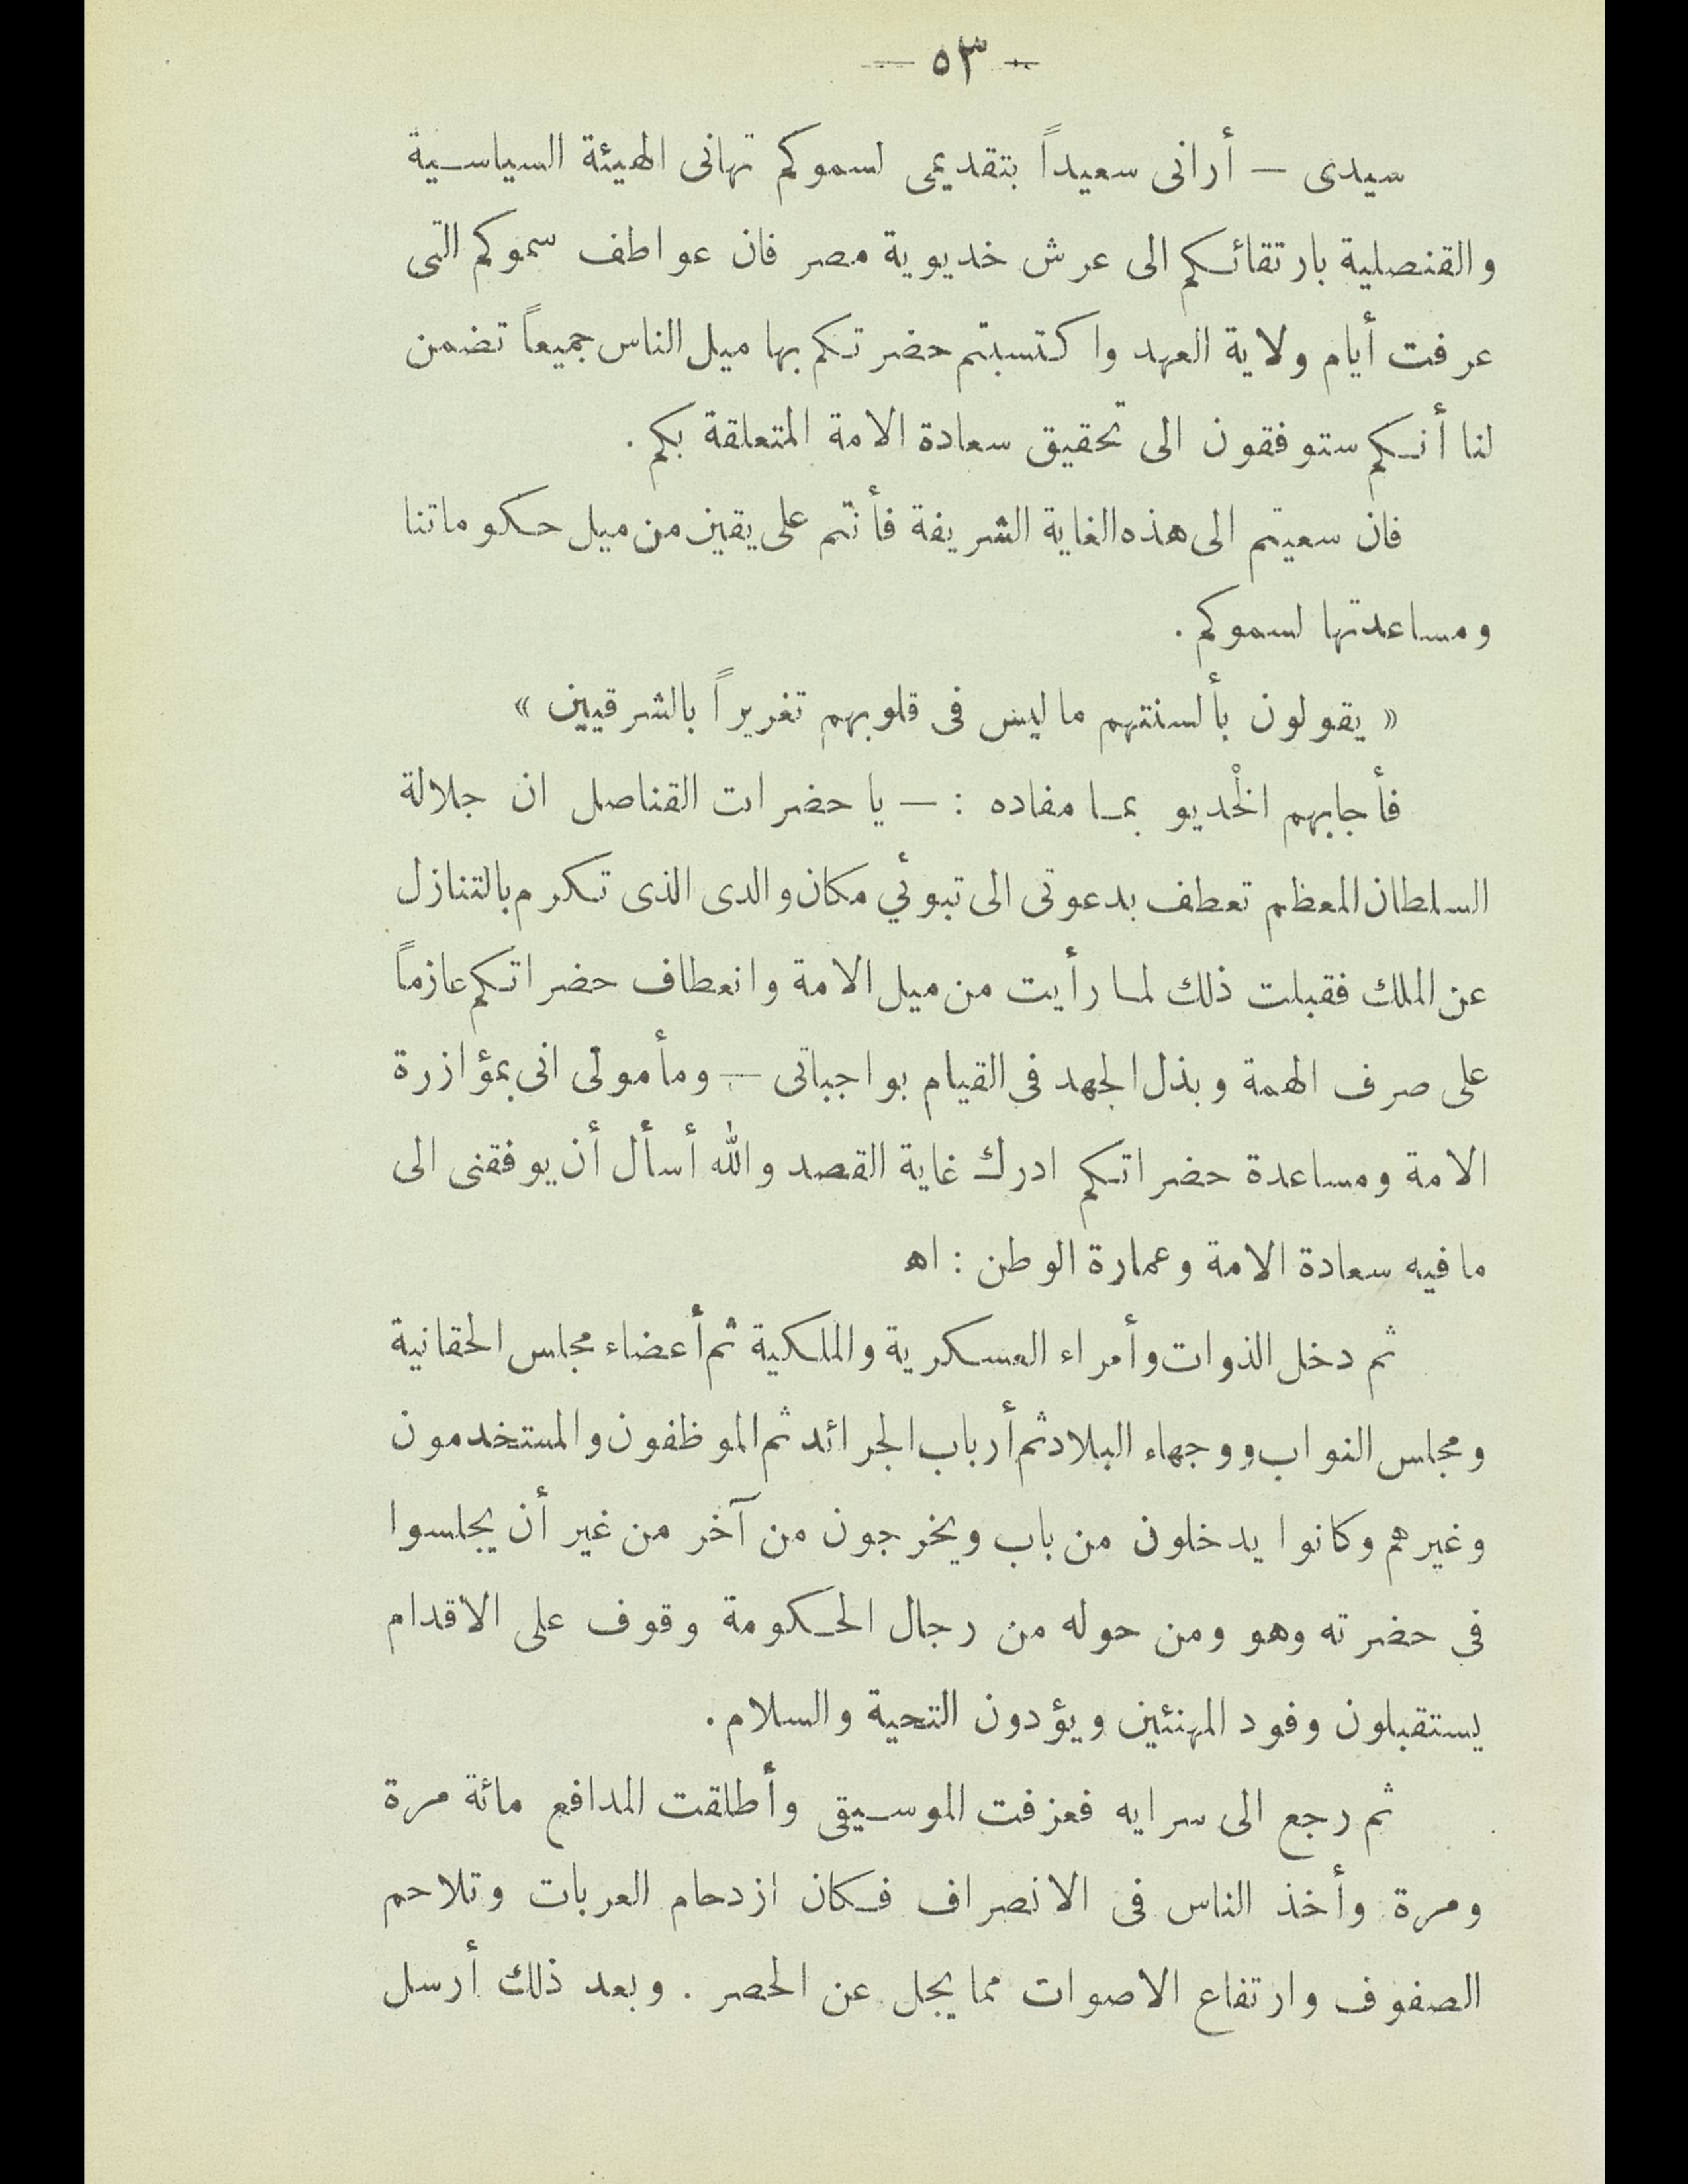 — ٥٣ —
سيدى — أرانى سعيداً بتقديمى لسموكم تهانى الهيئة السياسية
والقنصلية بارتقائكم الى عرش خديوية مصر فان عواطف سموكم التى
عرفت أيام ولاية العهد واكتسبتم حضرتكم بها ميل الناس جميعاً تضمن
لنا أنكم ستوفقون الى تحقيق سعادة الامة المتعلقة بكم .
فان سعيتم الى هذه الغاية الشريفة فأنتم على يقين من ميل حكوماتنا
ومساعدتها لسموكم .
« يقولون بألسنتهم ما ليس فى قلوبهم تغريراً بالشرقيين »
فأجابهم الخْديو بما مفاده : — يا حضرات القناصل ان جلالة
السلطان المعظم تعطف بدعوتى الى تبوئي مكان والدى الذى تكرم بالتنازل
عن الملك فقبلت ذلك لما رأيت من ميل الامة وانعطاف حضراتكم عازماً
على صرف الهمة وبذل الجهد فى القيام بواجباتى — ومأمولى انى بمؤازرة
الامة ومساعدة حضراتكم ادرك غاية القصد والله أسأل أن يوفقنى الى
ما فيه سعادة الامة وعمارة الوطن : اه
ثم دخل الذوات وأمراء العسكرية والملكية ثم أعضاء مجلس الحقانية
ومجلس النواب ووجهاء البلاد ثم أرباب الجرائد ثم الموظفون والمستخدمون
وغيرهم وكانوا يدخلون من باب ويخرجون من آخر من غير أن يجلسوا
فى حضرته وهو ومن حوله من رجال الحكومة وقوف على الاقدام
يستقبلون وفود المهنئين ويؤدون التحية والسلام .
ثم رجع الى سرايه فعزفت الموسيقى وأطلقت المدافع مائة مرة
ومرة وأخذ الناس فى الانصراف فكان ازدحام العربات وتلاحم
الصفوف وارتفاع الاصوات مما يجل عن الحصر . وبعد ذلك أرسل